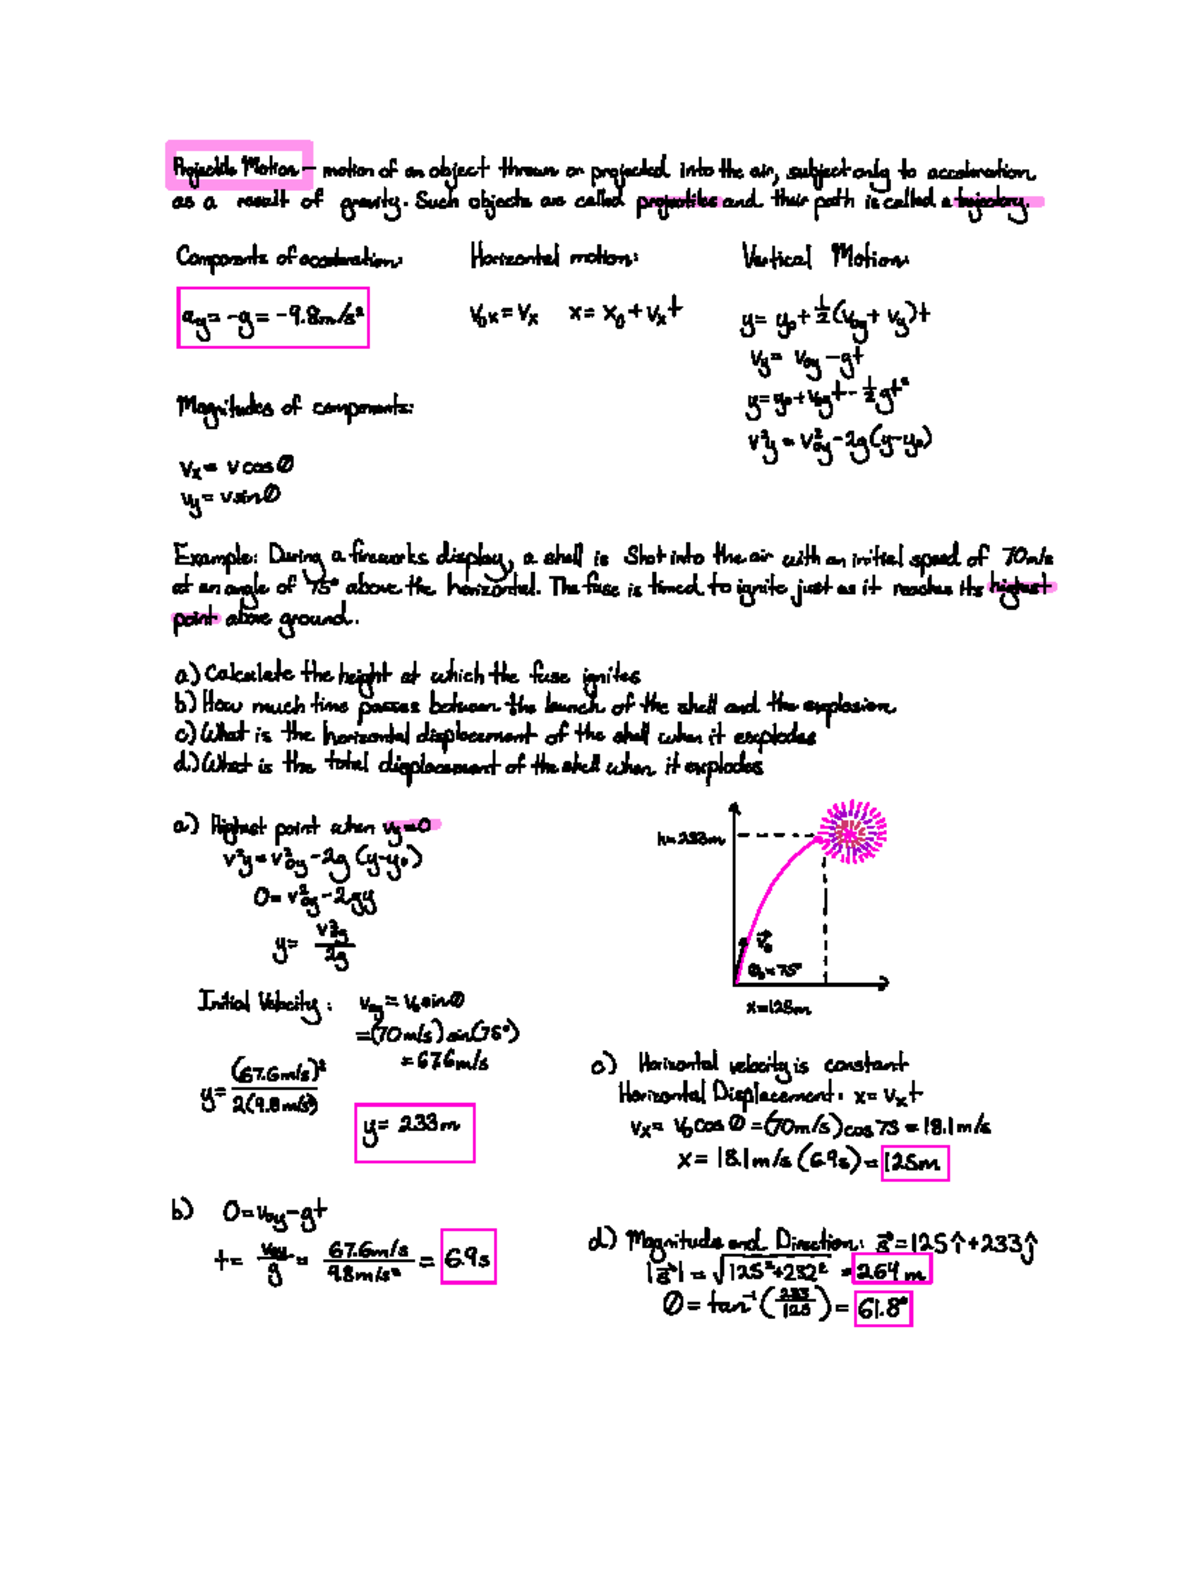 Projectile Motion - motion of an object thrown or projected into the air, subject only to acceleration
as a result of gravity. Such objects are called projectiles and their path is called a trajectory.
Components of acceleration:
a_y = -g = -9.8m/s²
Magnitudes of components:
v_x = v cosθ
v_y = v sinθ
Horizontal motion:
v_0x = v_x   x = x_0 + v_x t
Vertical Motion:
y = y_0 + ½(v_0y + v_y)t
v_y = v_0y - gt
y = y_0 + v_0y t - ½gt²
v²_y = v²_0y - 2g(y-y_0)
Example: During a fireworks display, a shell is shot into the air with an initial speed of 70m/s
at an angle of 75° above the horizontal. The fuse is timed to ignite just as it reaches its highest
point above ground.
a) Calculate the height at which the fuse ignites
b) How much time passes between the launch of the shell and the explosion
c) What is the horizontal displacement of the shell when it explodes
d) What is the total displacement of the shell when it explodes
a) Highest point when v_y=0
v²_y = v²_0y - 2g(y-y_0)
0 = v²_0y - 2gy
y = v²_0y / 2g
Initial Velocity: v_0y = v_0 sinθ
= (70m/s) sin(75°)
= 67.6m/s
y = (67.6m/s)² / 2(9.8m/s²)
y = 233m
b) 0 = v_0y - gt
t = v_0y / g = 67.6m/s / 9.8m/s² = 6.9s
h = 233m
v⃗_0
θ_0 = 75°
x = 125m
c) Horizontal velocity is constant
Horizontal Displacement: x = v_x t
v_x = v_0 cosθ = (70m/s) cos 75 = 18.1m/s
x = 18.1m/s (6.9s) = 125m
d) Magnitude and Direction: s⃗ = 125î + 233ĵ
|s⃗| = √125²+232² = 264m
θ = tan⁻¹(233/125) = 61.8°